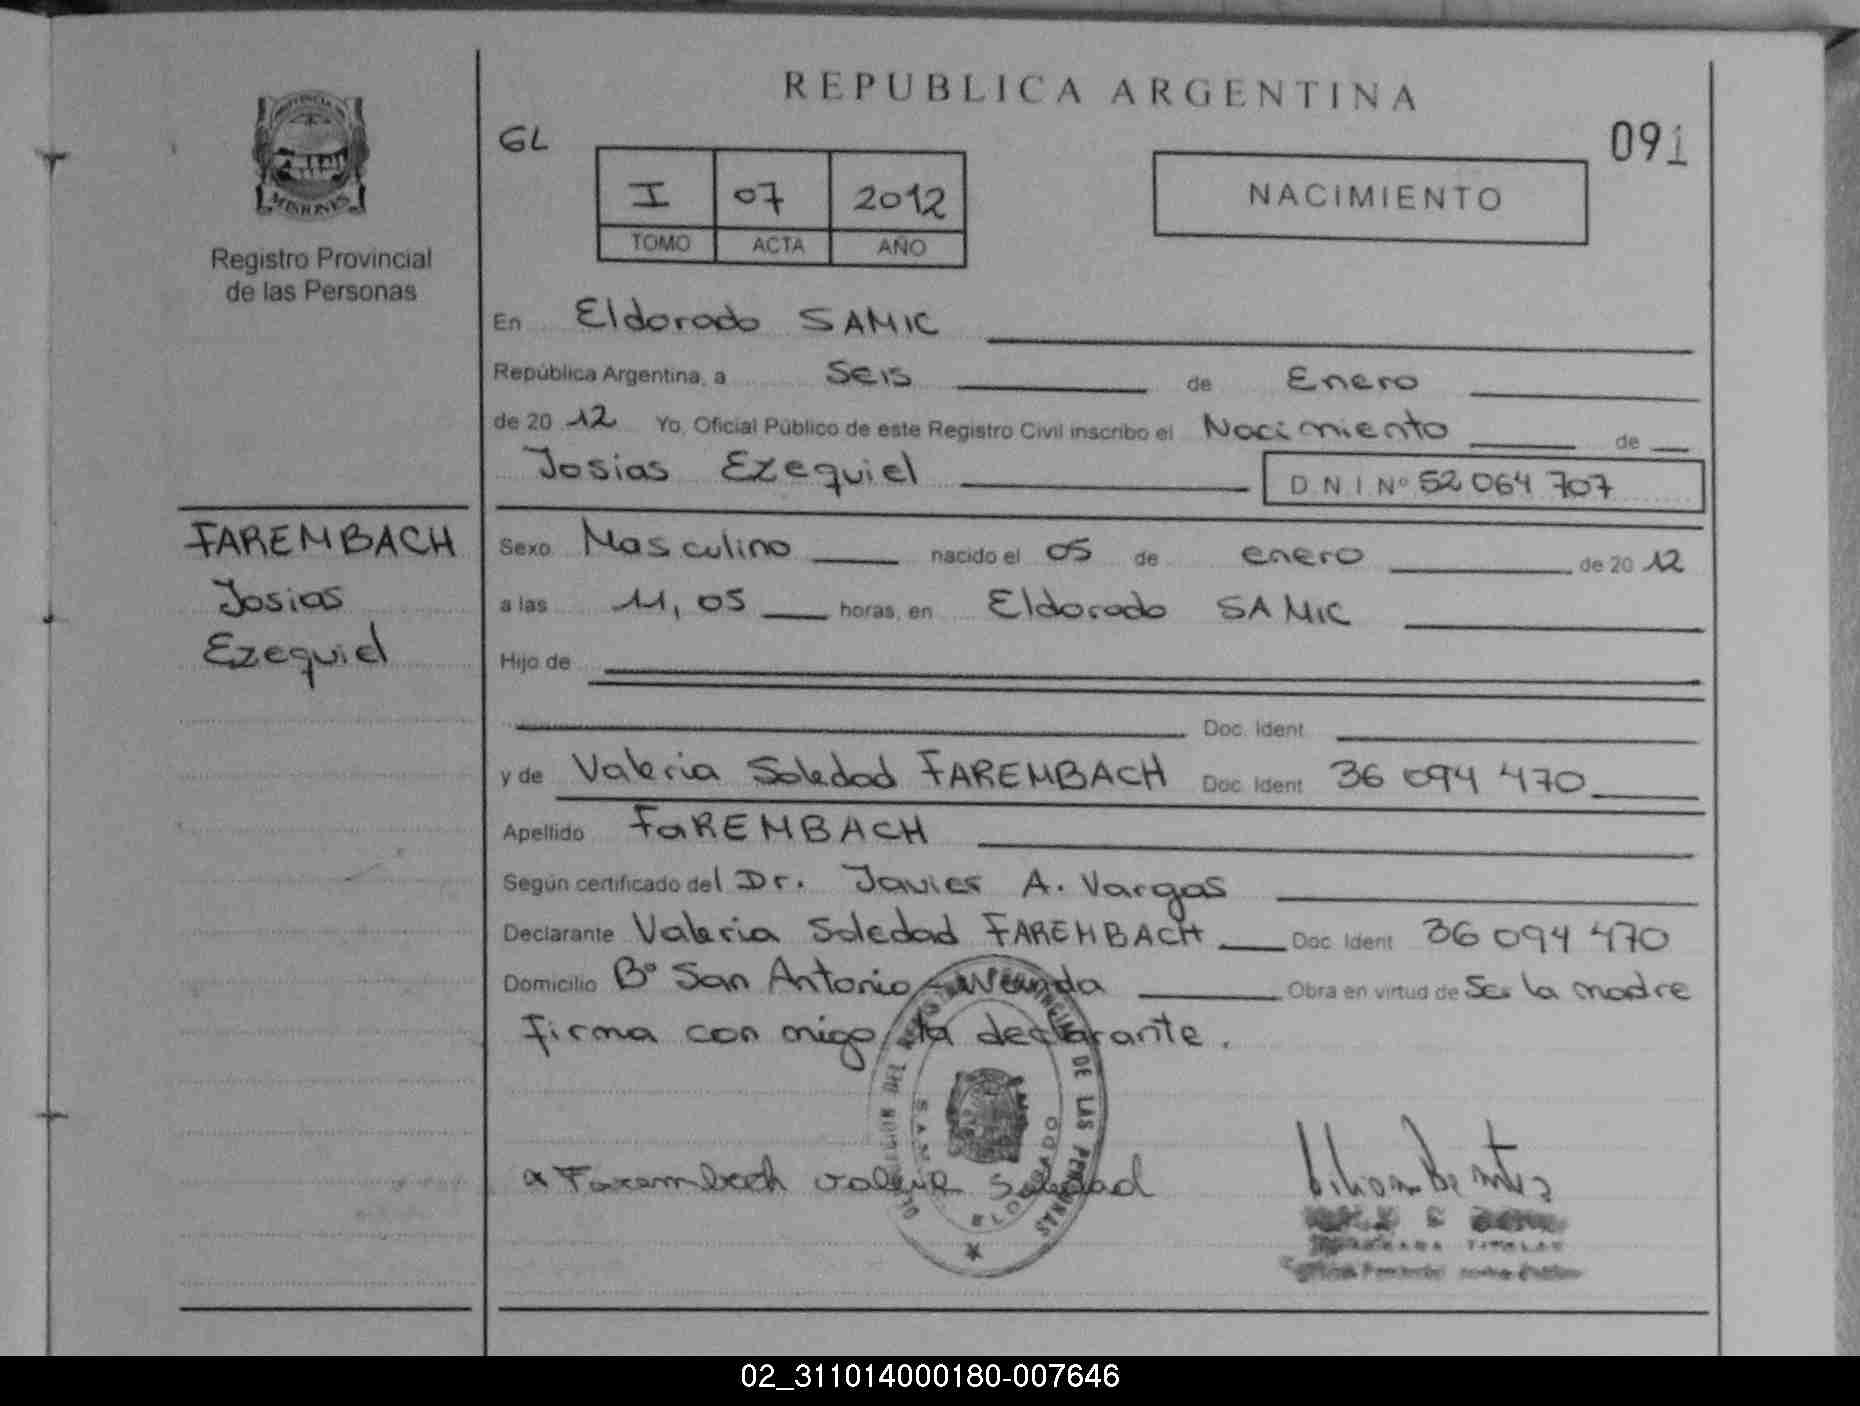 REPUBLICA ARGENTINA
091
GL
I 07 2012
TOMO ACTA AÑO
NACIMIENTO
PROVINCIA DE
MISIONES
Registro Provincial
de las Personas
En Eldorado SAMIC
República Argentina, a Seis de Enero
de 20 12 Yo, Oficial Público de este Registro Civil inscribo el Nacimiento de
Josias Ezequiel D N I Nº 52 064 707
FAREMBACH
Josias
Ezequiel
Sexo Masculino nacido el 05 de enero de 20 12
a las 11,05 horas, en Eldorado SAMIC
Hijo de
Doc. Ident
y de Valeria Soledad FAREMBACH Doc. Ident 36 094 470
Apellido FaREMBACH
Según certificado del Dr. Javier A. Vargas
Declarante Valeria Soledad FAREMBACH Doc. Ident 36 094 470
Domicilio Bº San Antonio Obra en virtud de Ser la madre
firma con migo la declarante.
DE LAS PERSONAS
ELDORADO
Farembach Soledad
TITULAR
02_311014000180-007646